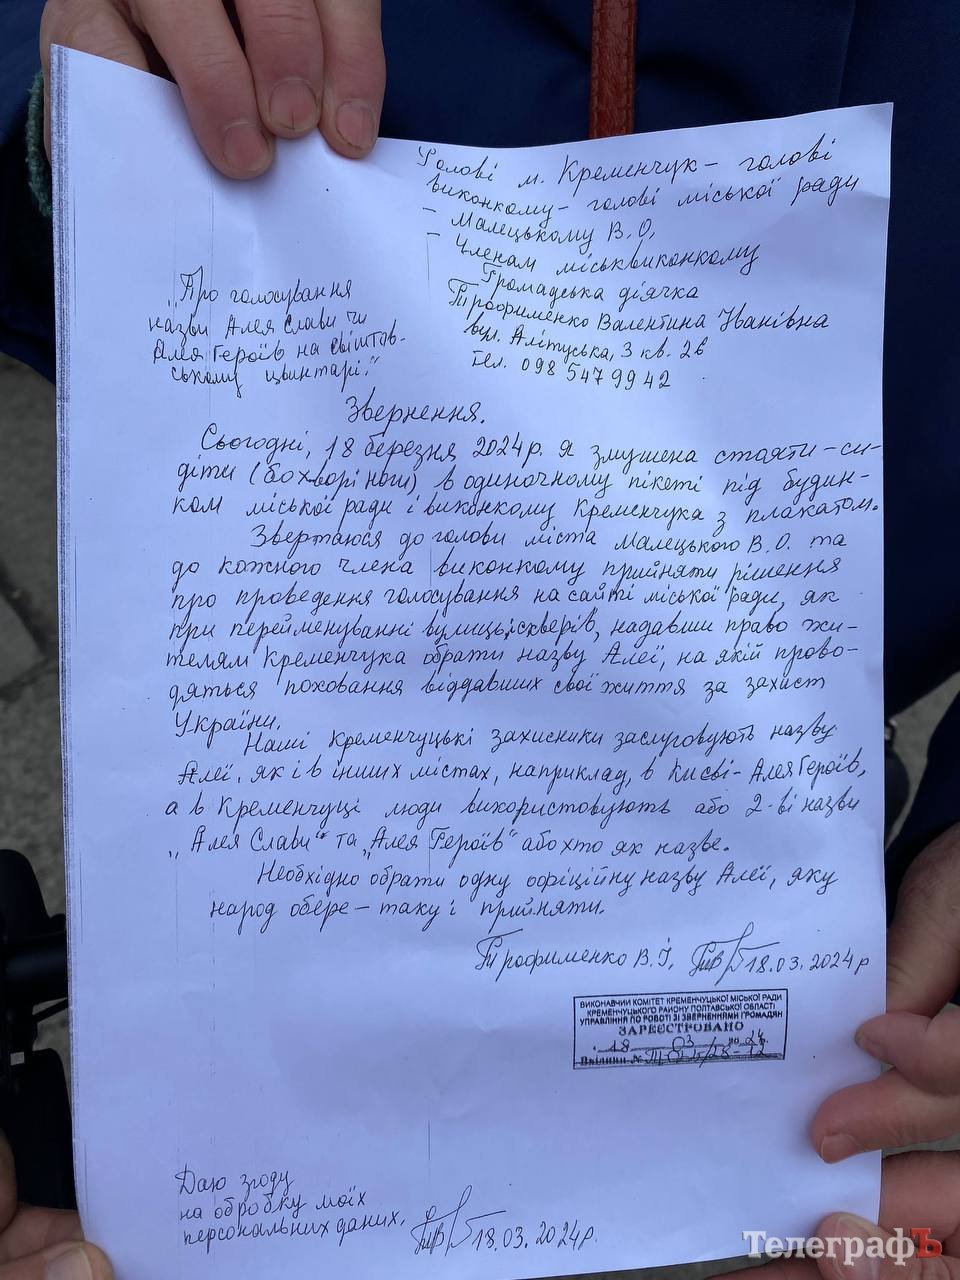 Голові м. Кременчук – голові
виконкому – голові міської ради
– Малецькому В.О,
– Членам міськвиконкому
Громадська діячка
Трофименко Валентина Іванівна
вул. Алітуська, 3 кв. 26
тел. 098 547 99 42
„Про голосування
назви Алея Слави чи
Алея Героїв на свіштов-
ському цвинтарі."
Звернення.
Сьогодні, 18 березня 2024р. я змушена стояти-си-
діти (бо хворі ноги) в одиночному пікеті під будин-
ком міської ради і виконкому Кременчука з плакатом.
Звертаюся до голови міста Малецького В.О. та
до кожного члена виконкому прийняти рішення
про проведення голосування на сайті міської ради, як
при перейменуванні вулиць, скверів, надавши право жи-
телям Кременчука обрати назву Алеї, на якій прово-
дяться поховання віддавших свої життя за захист
України.
Наші кременчуцькі захисники заслуговують назву
Алеї, як і в інших містах, наприклад, в Києві - Алея Героїв,
а в Кременчуці люди використовують або 2-ві назви
„Алея Слави" та „Алея Героїв" або хто як назве.
Необхідно обрати одну офіційну назву Алеї, яку
народ обере – таку і прийняти.
Трофименко В.І, 18.03.2024р
ВИКОНАВЧИЙ КОМІТЕТ КРЕМЕНЧУЦЬКОЇ МІСЬКОЇ РАДИ
КРЕМЕНЧУЦЬКОГО РАЙОНУ ПОЛТАВСЬКОЇ ОБЛАСТІ
УПРАВЛІННЯ ПО РОБОТІ ЗІ ЗВЕРНЕННЯМИ ГРОМАДЯН
ЗАРЕЄСТРОВАНО
18 03 2024р.
№
Даю згоду
на обробку моїх
персональних даних, 18.03.2024р.
ТелеграфЪ